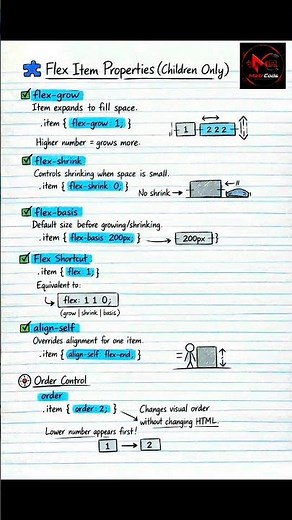 Flex Item Properties (Children Only)
flex-grow
Item expands to fill space.
.item { flex-grow: 1; }
1 2 2 2
Higher number = grows more.
flex-shrink
Controls shrinking when space is small.
.item { flex-shrink: 0; }
No shrink
flex-basis
Default size before growing/shrinking.
.item { flex-basis 200px; } 200px }
Flex Shortcut
.item { flex 1; }
Equivalent to:
flex: 1 1 0;
(grow | shrink | basis)
align-self
Overrides alignment for one item.
.item { align-self flex-end; }
Order Control
order
.item { order 2; }
Changes visual order
without changing HTML.
Lower number appears first!
1 2